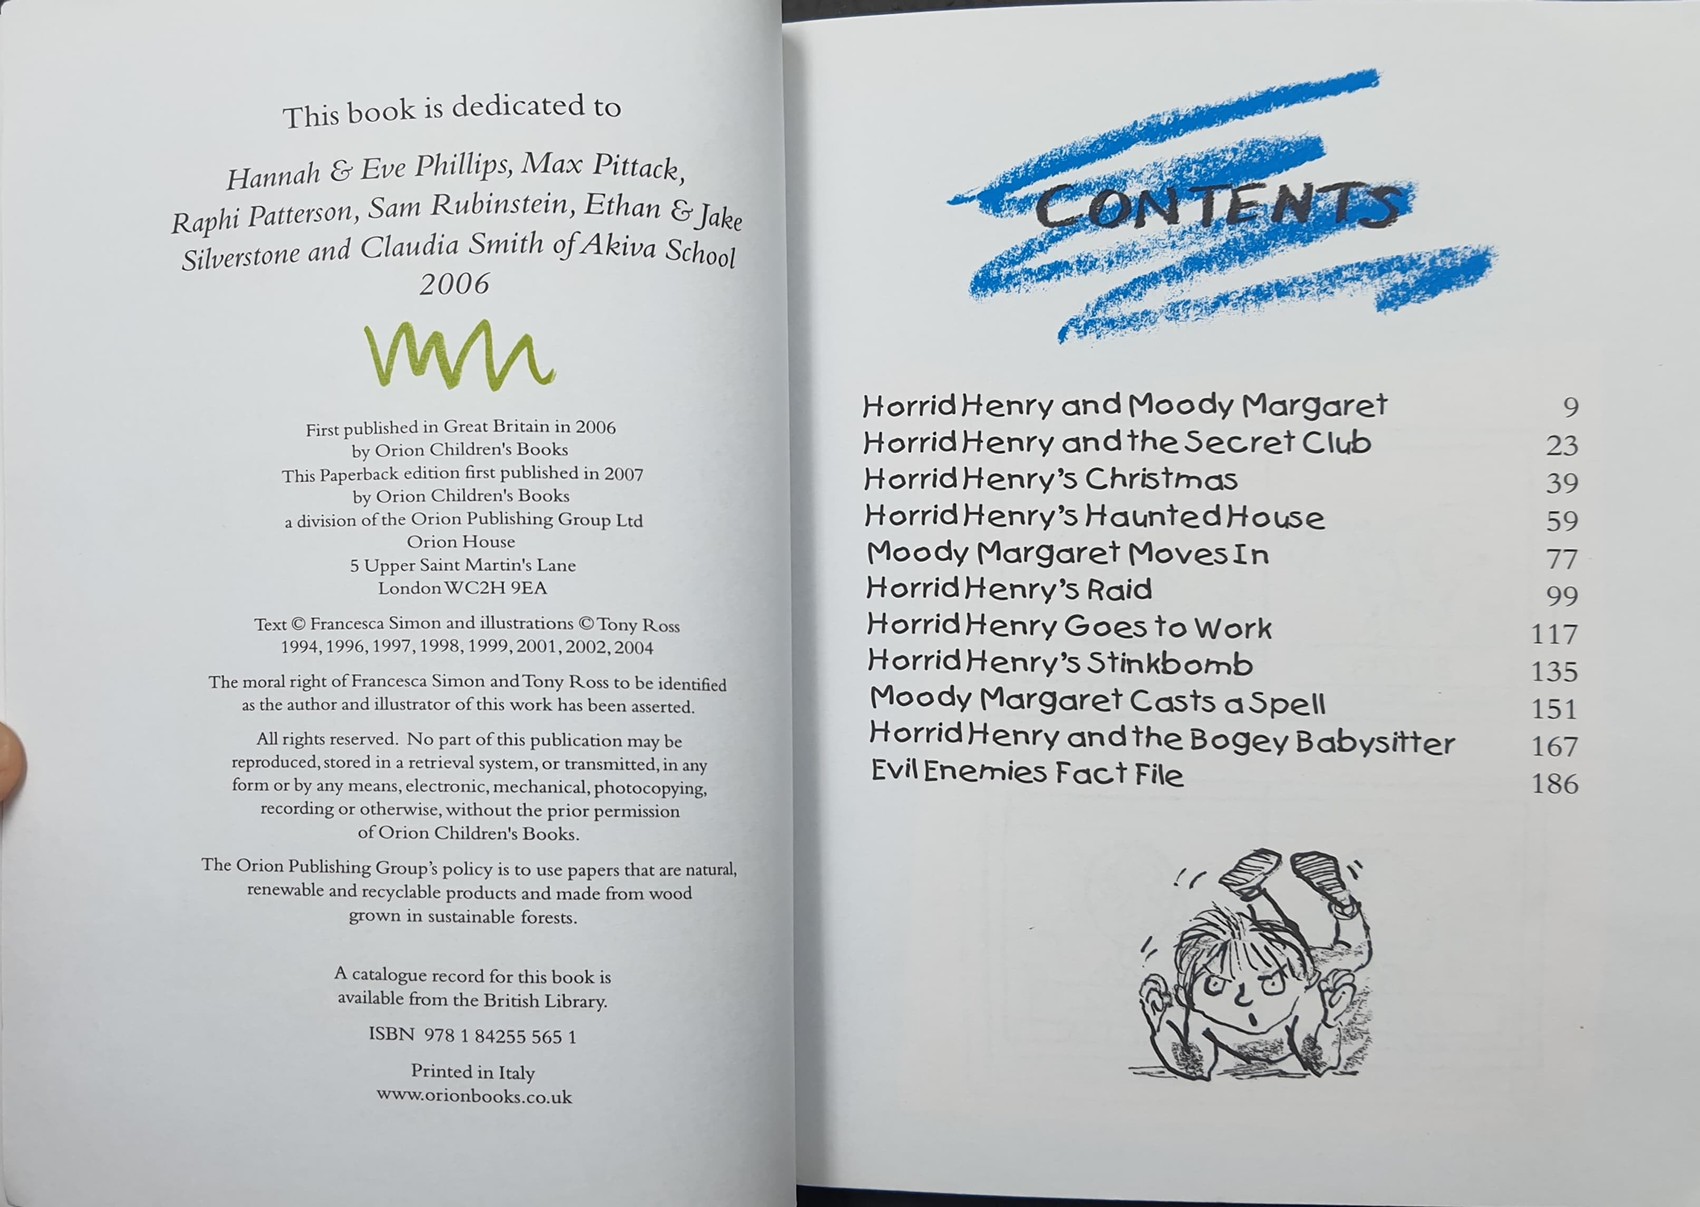 This book is dedicated to
Hannah & Eve Phillips, Max Pittack,
Raphi Patterson, Sam Rubinstein, Ethan & Jake
Silverstone and Claudia Smith of Akiva School
2006
First published in Great Britain in 2006
by Orion Children's Books
This Paperback edition first published in 2007
by Orion Children's Books
a division of the Orion Publishing Group Ltd
Orion House
5 Upper Saint Martin's Lane
London WC2H 9EA
Text © Francesca Simon and illustrations © Tony Ross
1994, 1996, 1997, 1998, 1999, 2001, 2002, 2004
The moral right of Francesca Simon and Tony Ross to be identified
as the author and illustrator of this work has been asserted.
All rights reserved. No part of this publication may be
reproduced, stored in a retrieval system, or transmitted, in any
form or by any means, electronic, mechanical, photocopying,
recording or otherwise, without the prior permission
of Orion Children's Books.
The Orion Publishing Group's policy is to use papers that are natural,
renewable and recyclable products and made from wood
grown in sustainable forests.
A catalogue record for this book is
available from the British Library.
ISBN 978 1 84255 565 1
Printed in Italy
www.orionbooks.co.uk
CONTENTS
Horrid Henry and Moody Margaret 9
Horrid Henry and the Secret Club 23
Horrid Henry's Christmas 39
Horrid Henry's Haunted House 59
Moody Margaret Moves In 77
Horrid Henry's Raid 99
Horrid Henry Goes to Work 117
Horrid Henry's Stinkbomb 135
Moody Margaret Casts a Spell 151
Horrid Henry and the Bogey Babysitter 167
Evil Enemies Fact File 186